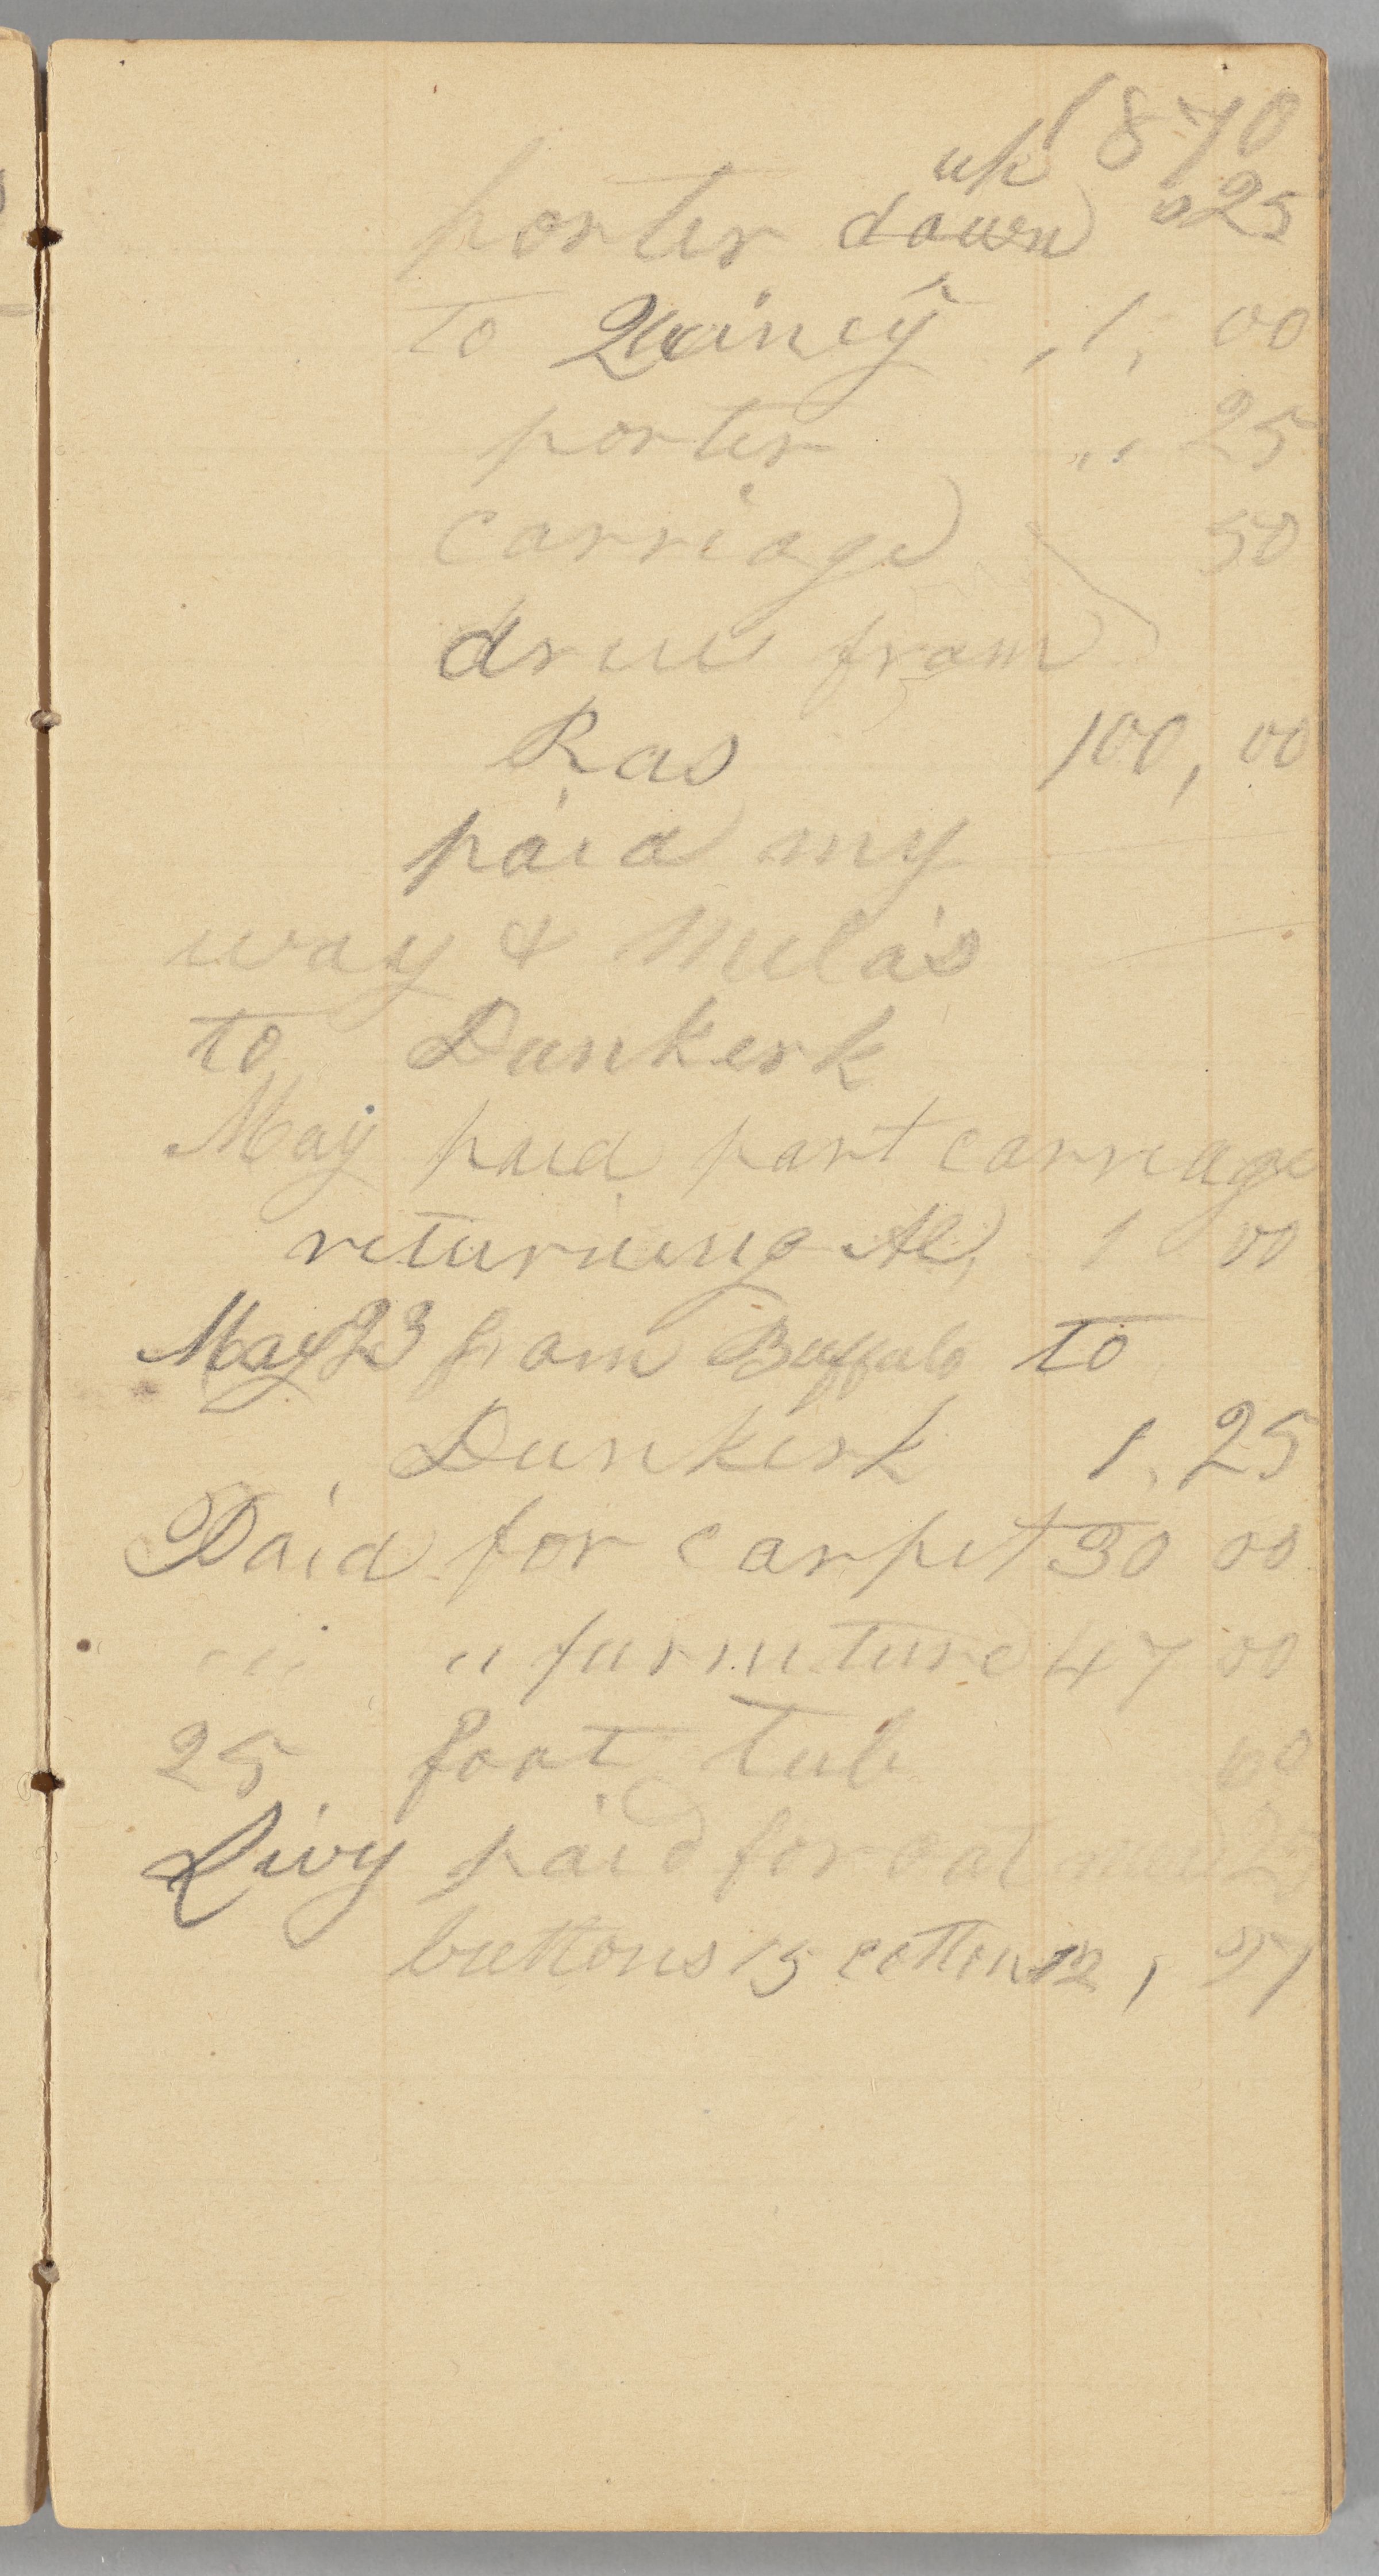 1870
up
porter down " 25
to Quincy , 1, 00
porter " 25
carriage 50
drew from
Ras 100, 00
paid my
way & Mela's
to Dunkerk
May paid part carriage
returning Al, 1 00
May 23 from Buffalo to
Dunkerk 1, 25
Paid for carpet 30 00
" " furniture 47 00
25 foot tub 60
Livy paid for oat meal 25
buttons 15 cotton 12,